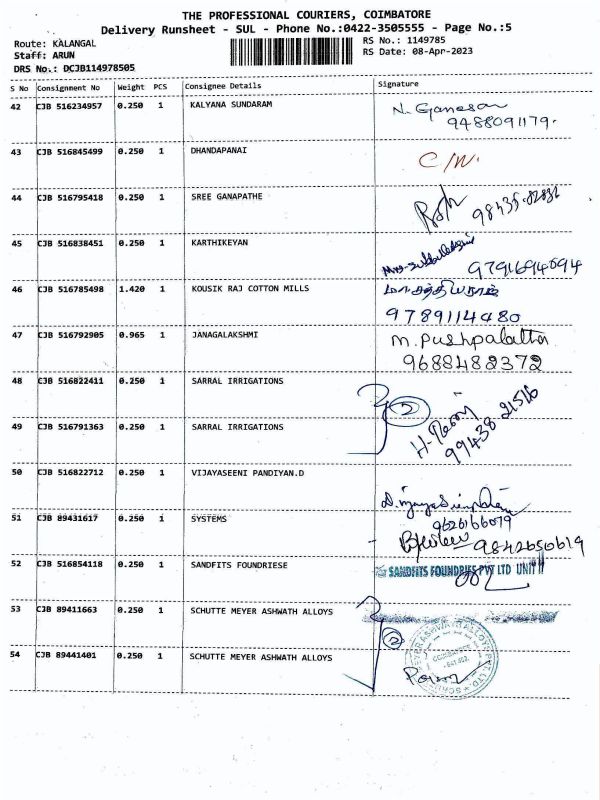 THE PROFESSIONAL COURIERS, COIMBATORE
Delivery Runsheet - SUL - Phone No.:0422-3505555 - Page No.:5
Route: KALANGAL
RS No.: 1149785
Staff: ARUN
RS Date: 08-Apr-2023
DRS No.: DCJB114978505
S No Consignment No Weight PCS Consignee Details Signature
42 CJB 516234957 0.250 1 KALYANA SUNDARAM N. Ganesan
9488091179.
43 CJB 516845499 0.250 1 DHANDAPANAI C/W.
44 CJB 516795418 0.250 1 SREE GANAPATHE
45 CJB 516838451 0.250 1 KARTHIKEYAN
9791694094
46 CJB 516785498 1.420 1 KOUSIK RAJ COTTON MILLS
9789114480
47 CJB 516792905 0.965 1 JANAGALAKSHMI M. Pushpalatha
9688488372
48 CJB 516822411 0.250 1 SARRAL IRRIGATIONS 2
49 CJB 516791363 0.250 1 SARRAL IRRIGATIONS
99438 21516
50 CJB 516822712 0.250 1 VIJAYASEENI PANDIYAN.D
9626166079
51 CJB 89431617 0.250 1 SYSTEMS
9842650619
52 CJB 516854118 0.250 1 SANDFITS FOUNDRIESE SANDFITS FOUNDRIES PVT LTD UNIT II
53 CJB 89411663 0.250 1 SCHUTTE MEYER ASHWATH ALLOYS
54 CJB 89441401 0.250 1 SCHUTTE MEYER ASHWATH ALLOYS